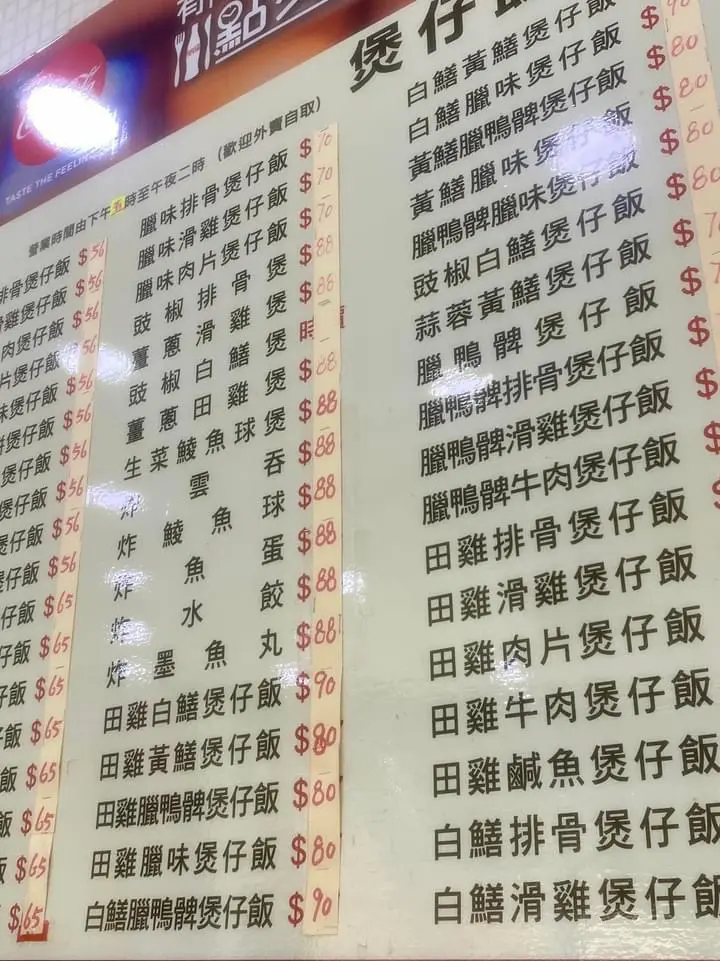 點
TASTE THE FEELING
營業時間由下午五時至午夜二時 (歡迎外賣自取)
排骨煲仔飯 $56
滑雞煲仔飯 $56
肉煲仔飯 $56
片煲仔飯 $56
味煲仔飯 $56
煲仔飯 $56
煲仔飯 $56
煲仔飯 $56
煲仔飯 $56
煲仔飯 $56
仔飯 $65
仔飯 $65
仔飯 $65
飯 $65
飯 $65
飯 $65
$65
$65
臘味排骨煲仔飯 $70
臘味滑雞煲仔飯 $70
臘味肉片煲仔飯 $70
豉椒排骨煲 $88
薑蔥滑雞煲 $88
豉椒白鱔煲 時價
薑蔥田雞煲 $88
生菜鯪魚球煲 $88
炸雲吞 $88
炸鯪魚球 $88
炸魚蛋 $88
炸水餃 $88
炸墨魚丸 $88
田雞白鱔煲仔飯 $90
田雞黃鱔煲仔飯 $80
田雞臘鴨髀煲仔飯 $80
田雞臘味煲仔飯 $80
白鱔臘鴨髀煲仔飯 $90
煲仔飯
白鱔黃鱔煲仔飯 $90
白鱔臘味煲仔飯 $80
黃鱔臘鴨髀煲仔飯 $80
黃鱔臘味煲仔飯 $80
臘鴨髀臘味煲仔飯 $80
豉椒白鱔煲仔飯 $
蒜蓉黃鱔煲仔飯 $
臘鴨髀煲仔飯 $
臘鴨髀排骨煲仔飯 $
臘鴨髀滑雞煲仔飯 $
臘鴨髀牛肉煲仔飯 $
田雞排骨煲仔飯
田雞滑雞煲仔飯
田雞肉片煲仔飯
田雞牛肉煲仔飯
田雞鹹魚煲仔飯
白鱔排骨煲仔飯
白鱔滑雞煲仔飯